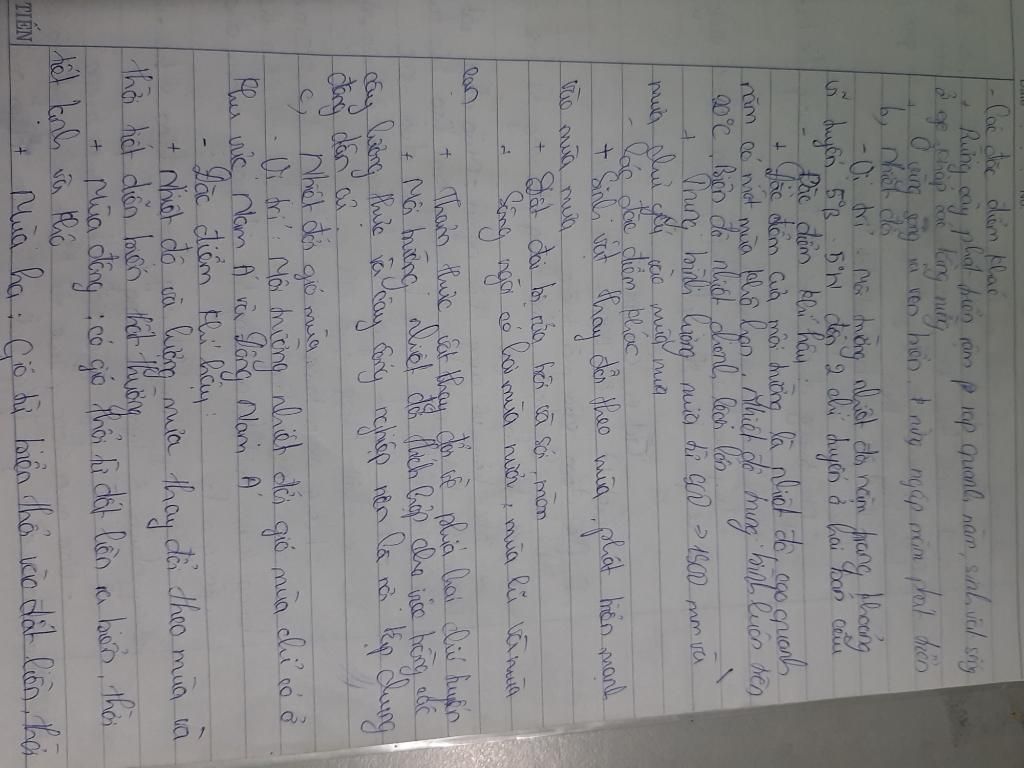 - Các đặc điểm khác
+ Rừng cây phát triển rậm rạp quanh năm, sinh vật sống
ở
+ Ở vùng sông và ven biển, ngập mặn phát triển
b, Nhiệt đới
- Vị trí: môi trường nhiệt đới nằm trong khoảng
vĩ tuyến 5°B - 5°N đến 2 chí tuyến ở hai bán cầu
- Đặc điểm khí hậu:
+ Đặc điểm của môi trường là nhiệt độ cao quanh
năm có một mùa khô hạn, Nhiệt độ trung bình luôn trên
20°C, biên độ nhiệt
+ Trung bình lượng mưa từ 500 -> 1500 mm và
mưa chủ yếu vào mùa mưa
- Các đặc điểm khác
+ Sinh vật thay đổi theo mùa, phát triển mạnh
vào mùa mưa
+ Đất đai bị rửa trôi và xói mòn
+ Sông ngòi có hai mùa nước, mùa lũ và mùa
cạn
+ Thảm thực vật thay đổi về phía hai chí tuyến
+ Môi trường nhiệt đới thích hợp cho việc trồng các
cây lương thực và cây công nghiệp nên là nơi tập trung
đông dân cư
c, Nhiệt đới gió mùa
- Vị trí: Môi trường nhiệt đới gió mùa chỉ có ở
khu vực Nam Á và Đông Nam Á
- Đặc điểm khí hậu:
+ Nhiệt độ và lượng mưa thay đổi theo mùa và
thời tiết diễn biến thất thường
+ Mùa đông: có gió thổi từ đất liền ra biển, thời
tiết lạnh và khô
+ Mùa hạ: Gió từ biển thổi vào đất liền, thời
TIẾN